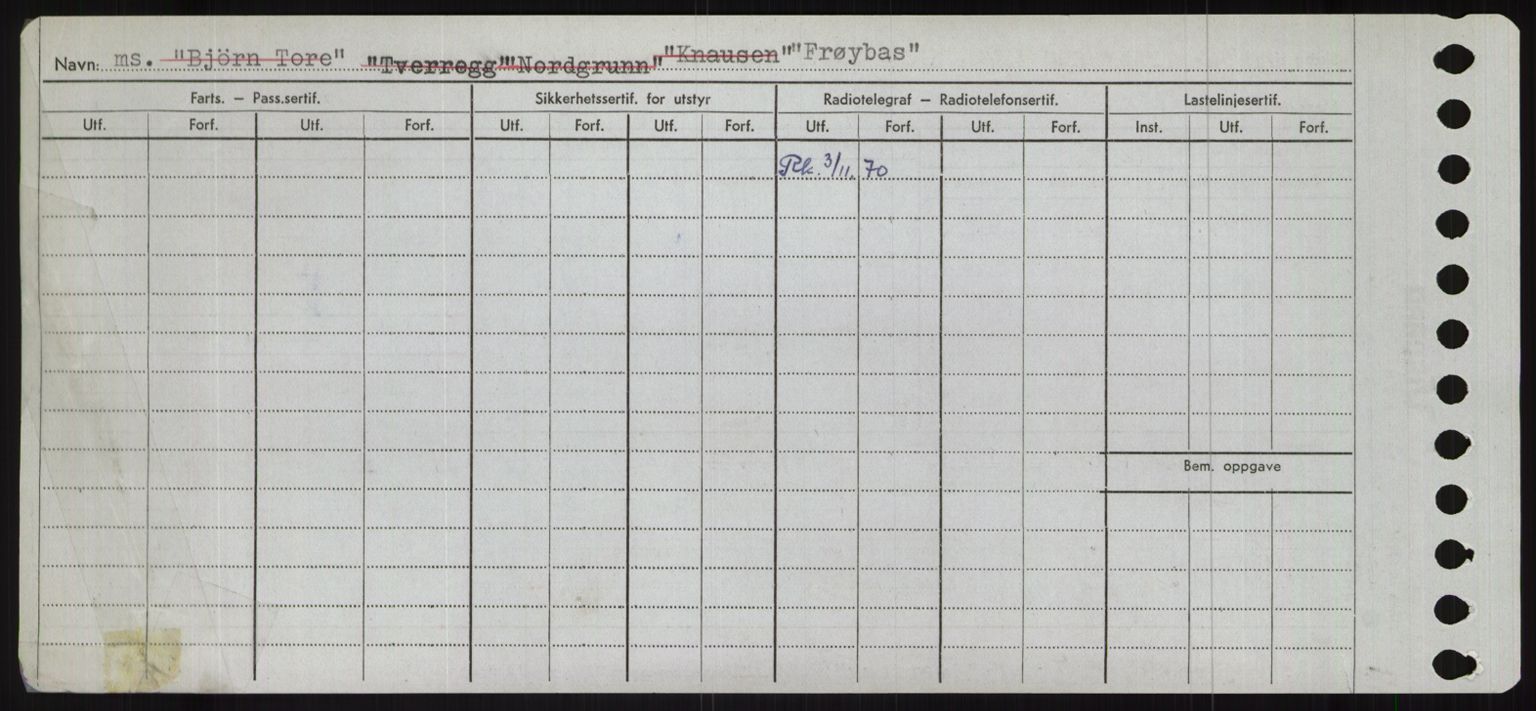 Navn: ms. "Björn Tore" "Tverregg" "Nordgrunn" "Knausen" "Frøybas"
Farts. – Pass.sertif. Sikkerhetssertif. for utstyr Radiotelegraf – Radiotelefonsertif. Lastelinjesertif.
Utf. Forf. Utf. Forf. Utf. Forf. Utf. Forf. Utf. Forf. Utf. Forf. Inst. Utf. Forf.
Rk. 3/11. 70
Bem. oppgave